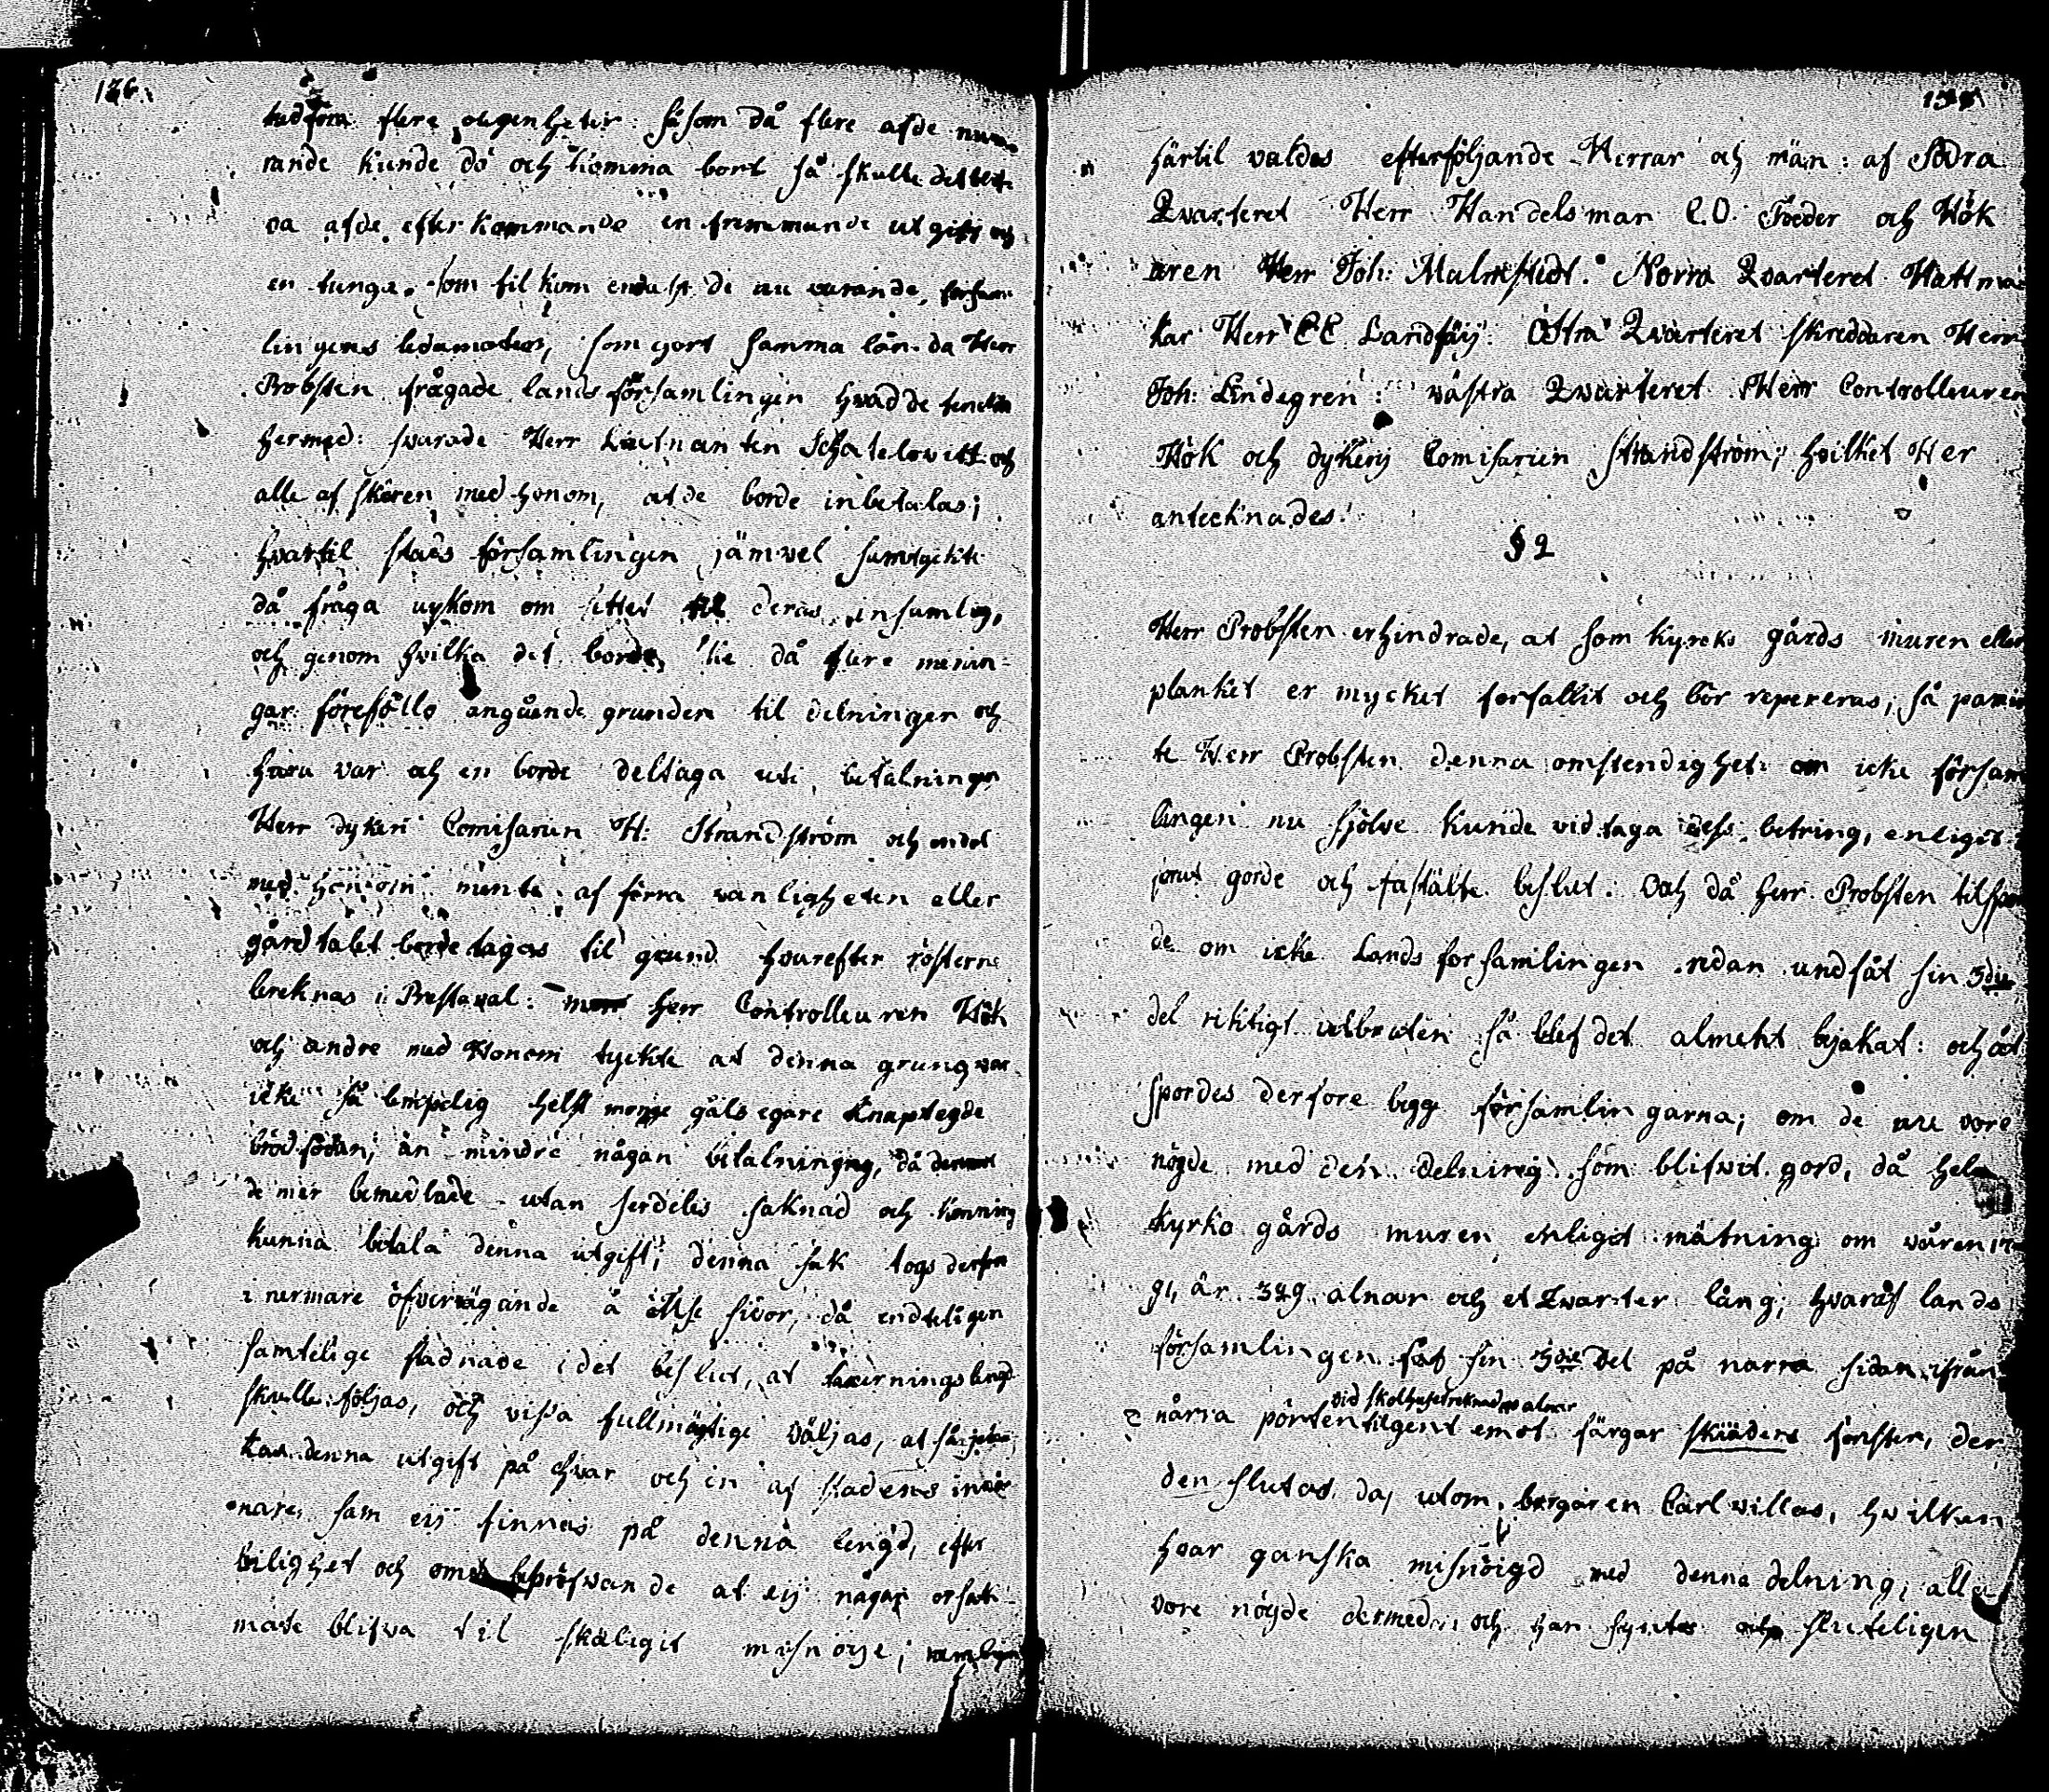 126.
medföra flere olegenheter: såsom då flere af de nuva
rande kunde dö och komma bort så skulle det blif
va af de efterkommande en fremmande utgift och
en tunga, som tilkom endast de nu varande, försam
lingens ledamoter, som gort samma lån. da Herr
Probsten frågade landsförsamlingen hvad de tenckte
hermed: svarade Herr Leutnanten Schatelowitz och
alle af skären med honom, at de borde inbetalas;
hvartil stads församlingen jämvel samtyckte
då fråga upkom om settet til deras insamling,
och genom hvilka det borde ske då flere menin-
gar föreföllo angående grunden til delningen och
huru var och en borde deltaga uti betalningen
Herr dykeri Comisarien H: Strandström och endel
med honom mente, af förra vanligheten eller
gårdtalet borde tagas til grund hvarefter rösterne
bereknas i Prestaval: Herr Controlleuren Hök
och andre med Honom tyckte at denna grung var
icke så lempelig helst monge gåls egare knapt egde
brödfödan, än mindre någon betalningng, då deremot
de mer bemedlade utan serdeles saknad och kenning
kunna betala denna utgift; denna sak togs derföre
i nermare öfvervägande å sidor, då endteligen
samtelige stadnade i det beslut, at taxeringslengd
skulle följas, och vissa fullmägtige väljas, at
denna utgift på hvar och en af stadens invå
nare, som eij finnas på denna lengd, efter
bilighet och omt bepröfvande at eij någon orsak
måte blifva til skäligit misnöije; nemligen
härtil valdes efterföljande Herrar och män: af Södra
Qvarteret Herr Handelsman C.O. Foeder och Hök
aren Herr Joh: Malmstedt. Norra Qvarteret Hattma
kar Herr CC Landtfäij: Östra Qvarteret skreddaren Herr
Joh: Lindegren: västra Qvarteret Herr Controlleuren
Hök och dykerij Comisarien Strandström; hvilket Her
antecknades.
§ 2
Herr Probsten erhindrade, at som kyrcko gårds muren eller
planket er mycket forfallit och bör repereras, så påmin
te Herr Probsten denna omstendighet: om icke församm
lingen nu sjelve kunde vidtaga dess betring, enligit
förut gorde och fastälte beslut. Och då Herr Probsten tilspor
de om icke Lands forsamlingen redan undfåt sin 3die
del riktigt utbruten så blef det almeht bejakat: och åt
spordes derfore begge församlingarna; om de nu vore
nögde med den delning som blifvit gord, då hela
Kyrko gårds muren enligit mätning om våren 17
91, är 329 alnar och et Qvarter lång, hvaraf lands
församlingen fåt sin 3die del på norra sidan ifrån
vid skolhuset reknad alnar
norra porten tilgent emot färgar skiäders fenster, der
den slutas, då, utom borgaren Carl villas, hvilken
hvar ganska misnöigd med denna delning, alla
vore nöyde dermed, och han syntes sluteligen